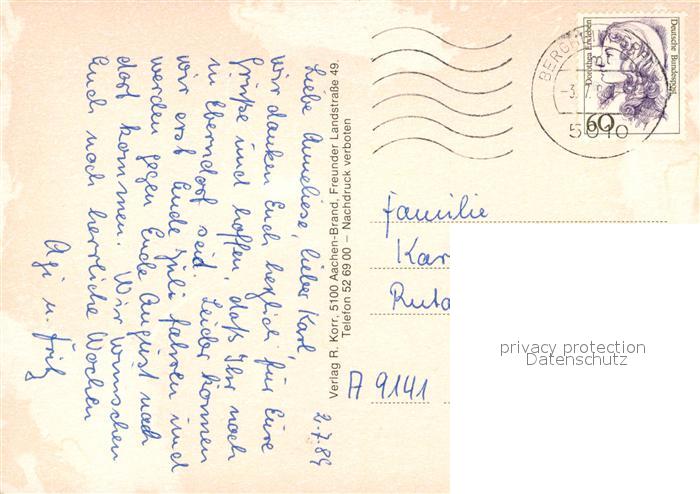 2.7.89
Liebe Anneliese, lieber Karl,
wir danken Euch herzlich für Eure
Grüße und hoffen, daß Ihr noch
in Eberndorf seid. Leider können
wir erst Ende Juli fahren und
werden gegen Ende August nach
dort kommen. Wir wünschen
Euch noch herrliche Wochen
Agi u. Fritz
Verlag R. Korr, 5100 Aachen-Brand, Freunder Landstraße 49,
Telefon 52 69 00 – Nachdruck verboten
Dorothea Erxleben
Deutsche Bundespost
60
-3.7.8
5010
Familie
Kar
Ruta
A 9141
privacy protection
Datenschutz